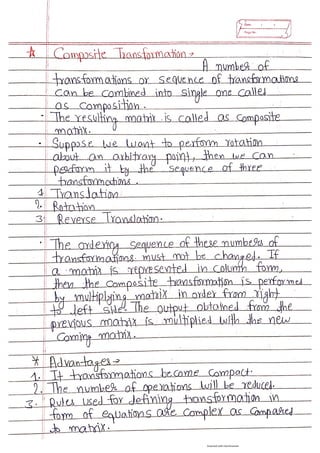 Date
Page No.
★ Composite Transformation :-
A number of
transformations or sequence of transformations
can be combined into single one called
as composition.
• The resulting matrix is called as composite
matrix.
• Suppose we want to perform rotation
about an arbitrary point, then we can
perform it by the sequence of three
transformations.
1. Translation
2. Rotation
3. Reverse Translation.
• The ordering sequence of these numbers of
transformations must not be changed. If
a matrix is represented in column form,
then the composite transformation is performed
by multiplying matrix in order from right
to left side. The output obtained from the
previous matrix is multiplied with the new
coming matrix.
* Advantages →
1. It transformations become compact.
2. The number of operations will be reduced.
3. Rules used for defining transformation in
form of equations are complex as compared
to matrix.
Scanned with CamScanner